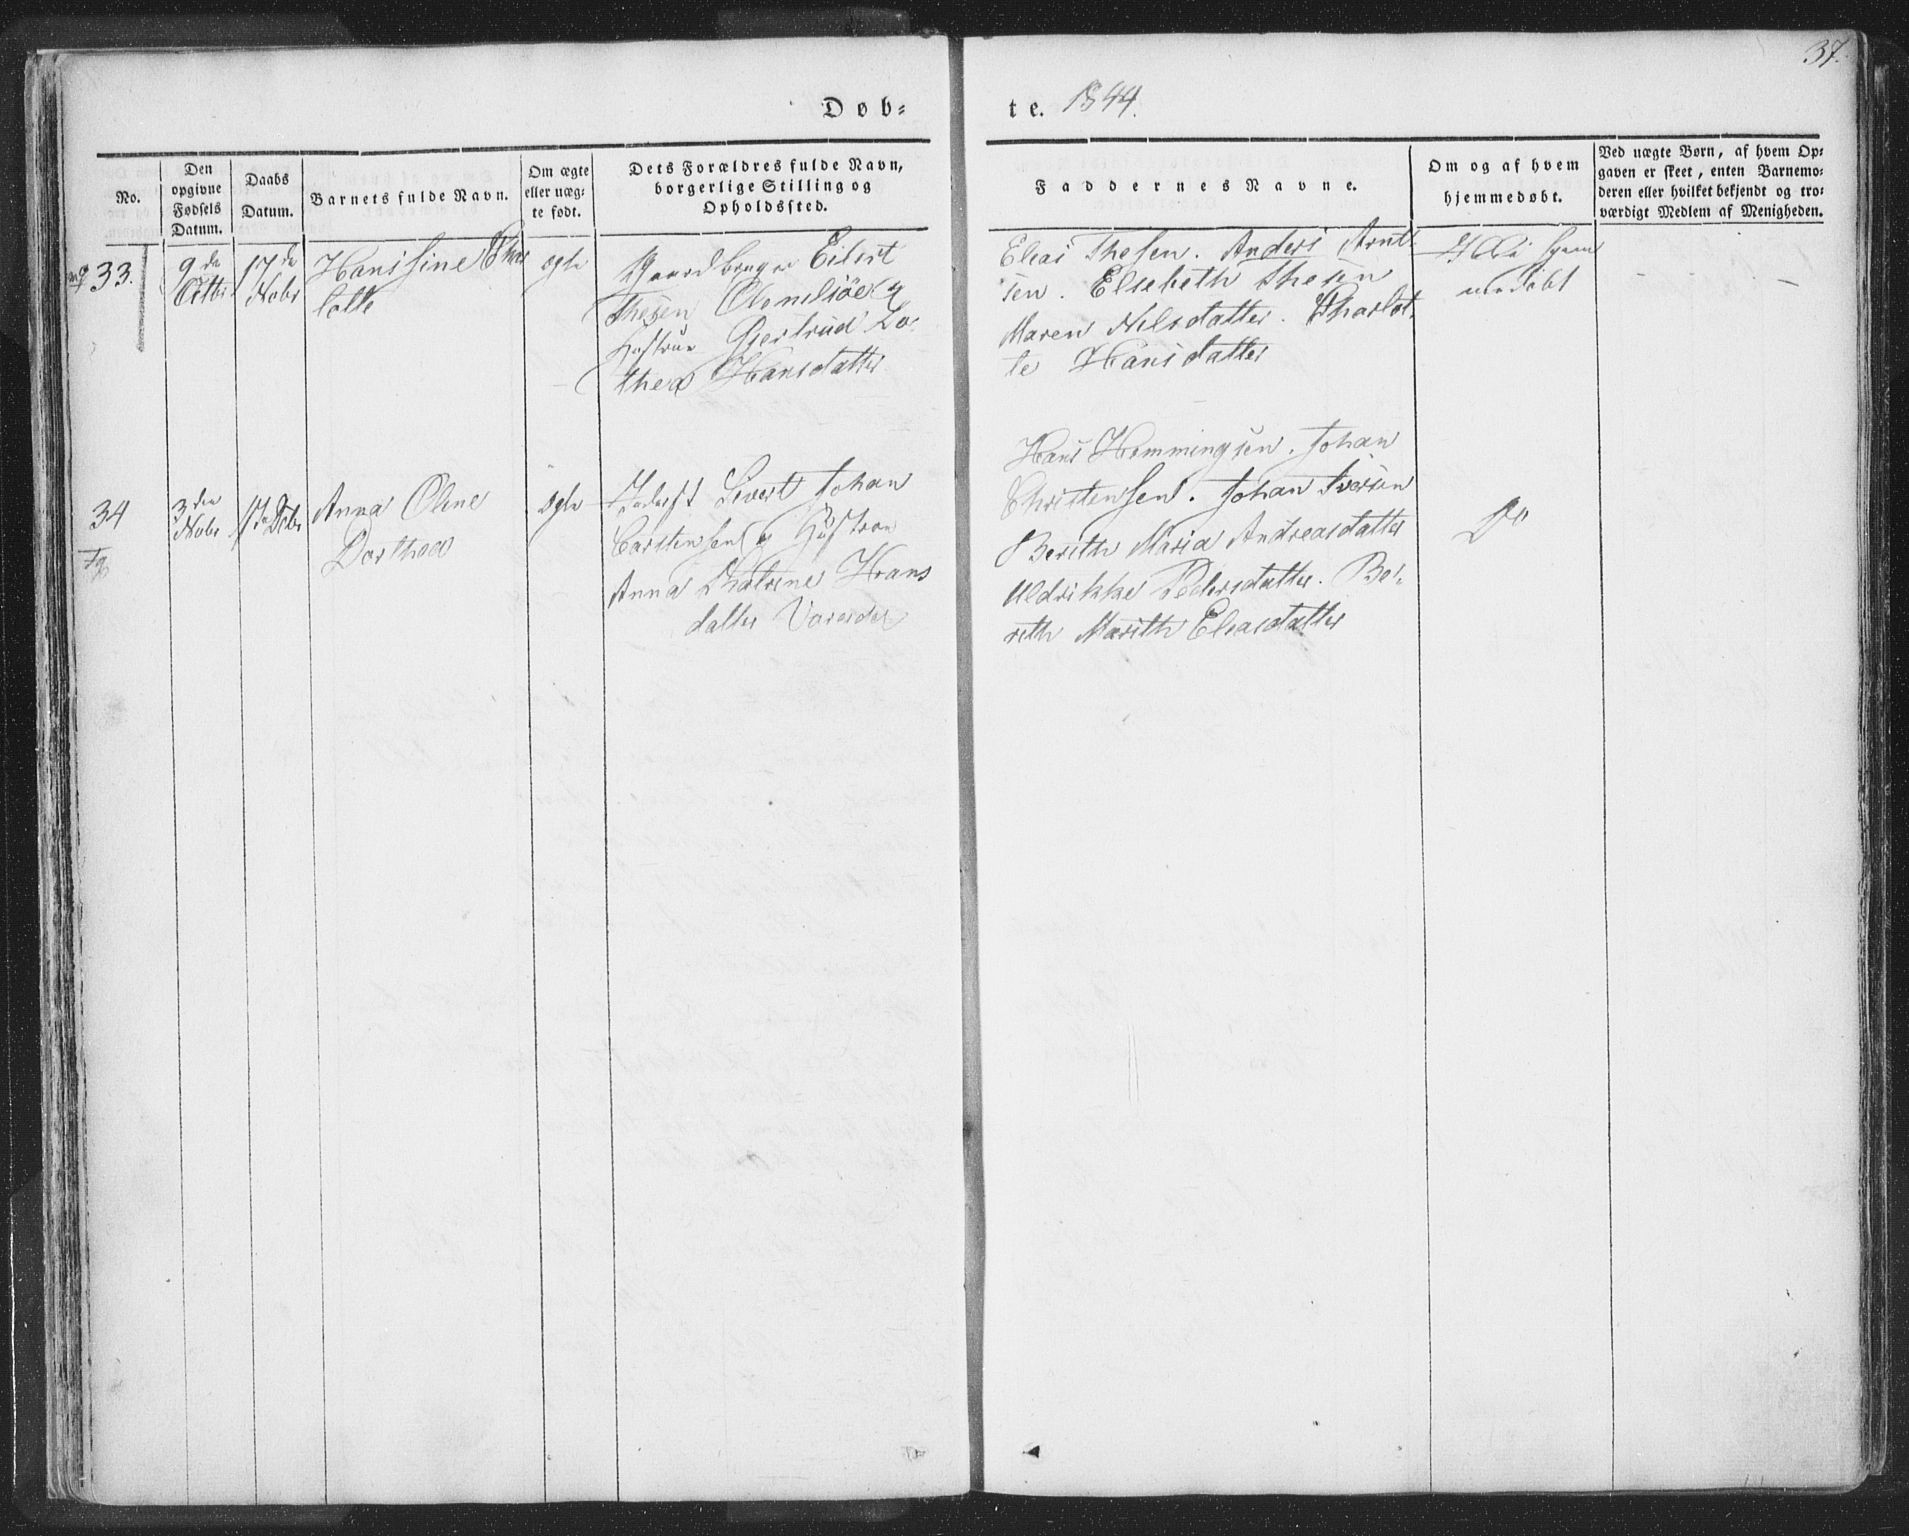 37.
Døb-
te. 1844.
No.
Den opgivne Fødsels Datum.
Daabs Datum.
Barnets fulde Navn.
Om ægte eller uæg-te født.
Dets Forældres fulde Navn, borgerlige Stilling og Opholdssted.
Faddernes Navne.
Om og af hvem hjemmedøbt.
Ved uægte Børn, af hvem Op-gaven er skeet, enten Barnemo-deren eller hvilket bekjendt og tro-værdigt Medlem af Menigheden.
33.
9de
17de
Novbr
Hansine Char
lotte
ægte
Gaardbruger Eilert
Thesen
Hustrue Gjertrud Do-
thea Hansdatter
Elias Thesen. Anders Arnt-
sen. Elsebeth Thesen
Maren Nilsdatter. Charlot-
te Hansdatter
Ikke hjem
medøbt
34
3die
Novbr
Anna Oline
Dorthea
ægte
Sivert Johan
Carstensen og Hustrue
Anna Hans
datter
Hans Hemmingsen. Johan
Christensen. Johan Iversen
Berith Maria Andreasdatter
Uldrikke Pedersdatter. Be-
rith Marith Eliasdatter
Do